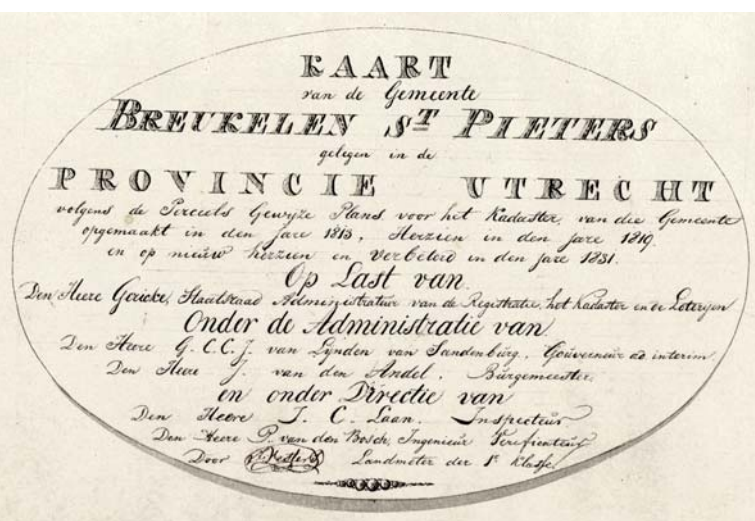 KAART
van de Gemeente
BREUKELEN ST PIETERS
gelegen in de
PROVINCIE UTRECHT
volgens de Perceels Gewyze Plans voor het Kadaster, van die Gemeente
opgemaakt in den jare 1813, Herzien in den jare 1819,
en op nieuw herzien en verbeterd in den jare 1831.
Op Last van
Den Heere Gericke, Staatsraad Administrateur van de Registratie, het Kadaster en de Loteryen
Onder de Administratie van
Den Heere G. C. C. J. van Lynden van Sandenburg, Gouverneur ad interim
Den Heere J. van den Andel, Burgemeester
en onder Directie van
Den Heere J. C. Laan, Inspecteur
Den Heere P. van den Bosch, Ingenieur Verificateur
Door Landmeter der 1e Klasse